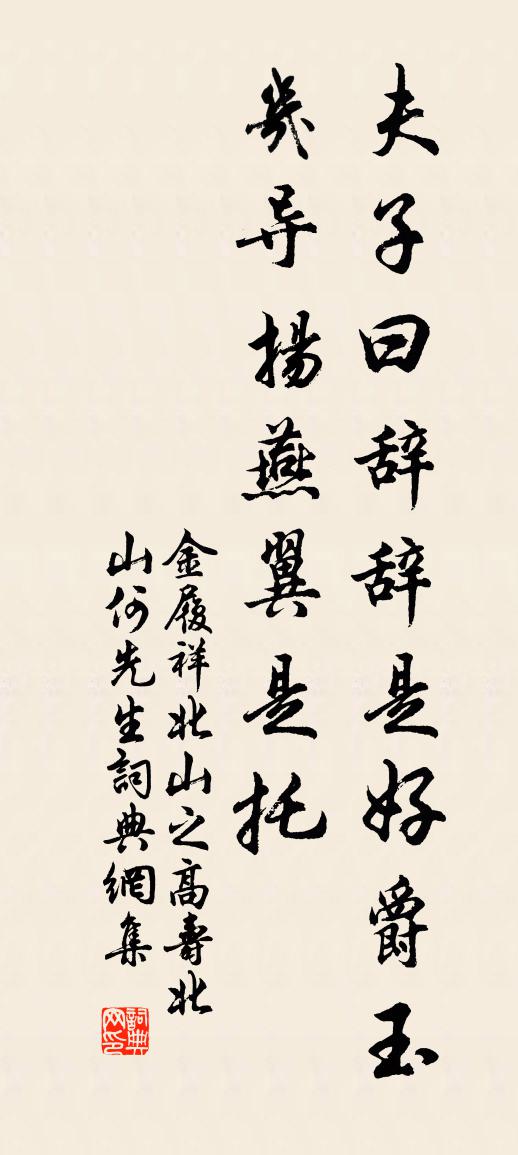 夫子曰辞辞是好爵玉
几导揚燕翼是托
金履祥北山之高壽北
山何先生詞典網集
詞典网印